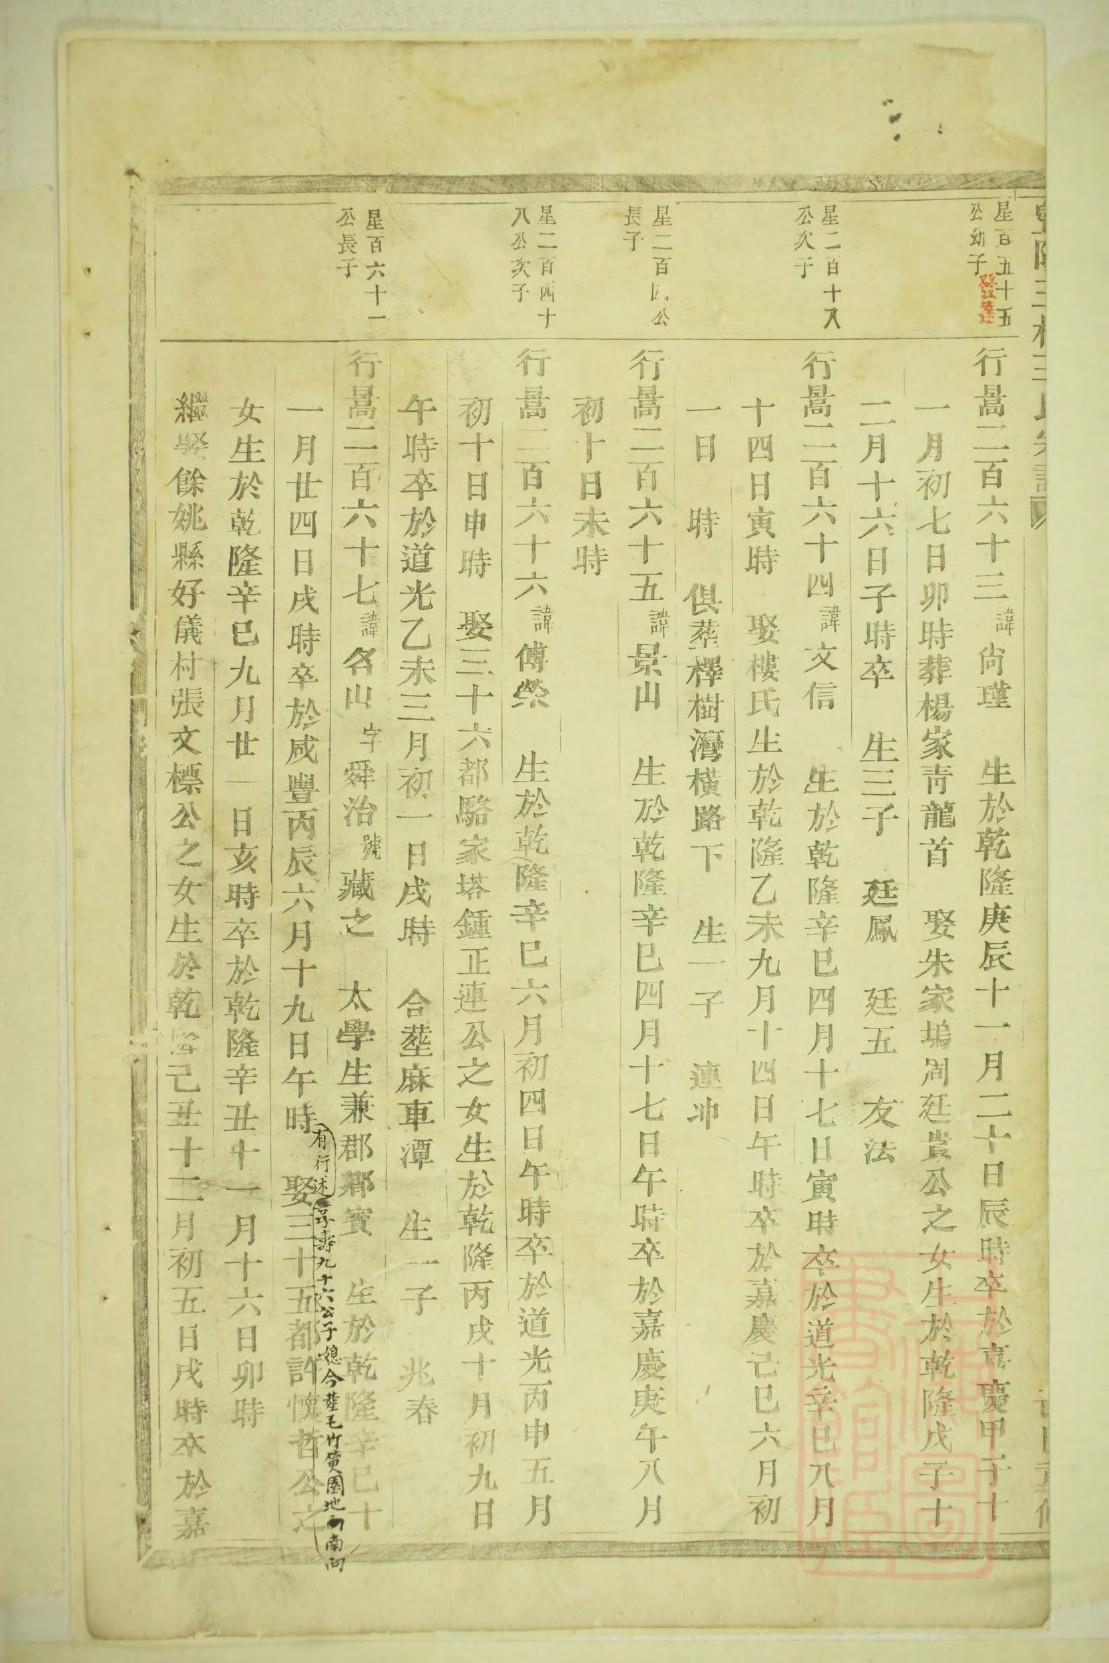 星百五十五
公幼子
發達
行暠二百六十三諱尙瑾 生於乾隆庚辰十一月二十日辰時卒於嘉慶甲子十
一月初七日卯時葬楊家靑龍首 娶朱家塢周廷貴公之女生於乾隆戊子十
二月十六日子時卒 生三子 廷鳳 廷五 友法
星二百十八
公次子
行暠二百六十四諱文信 生於乾隆辛巳四月十七日寅時卒於道光辛巳八月
十四日寅時 娶樓氏生於乾隆乙未九月十四日午時卒於嘉慶己巳六月初
一日 時 俱塟檡樹灣橫路下 生一子 連冲
星二百四公
長子
行暠二百六十五諱景山 生於乾隆辛巳四月十七日午時卒於嘉慶庚午八月
初十日未時
星二百四十
八公次子
行暠二百六十六諱傅榮 生於乾隆辛巳六月初四日午時卒於道光丙申五月
初十日申時 娶三十六都駱家塔鍾正連公之女生於乾隆丙戌十月初九日
午時卒於道光乙未三月初一日戌時 合塟麻車潭 生一子 兆春
星百六十一
公長子
行暠二百六十七諱名山字舜治號藏之 太學生兼郡鄉賓 生於乾隆辛巳十
一月廿四日戌時卒於咸豐丙辰六月十九日午時 娶三十五都許懷哲公之
有行述 享壽九十六公子媳今塟毛竹園地南向
女生於乾隆辛巳九月廿一日亥時卒於乾隆辛丑十一月十六日卯時
繼娶餘姚縣好儀村張文標公之女生於乾隆己丑十二月初五日戌時卒於嘉